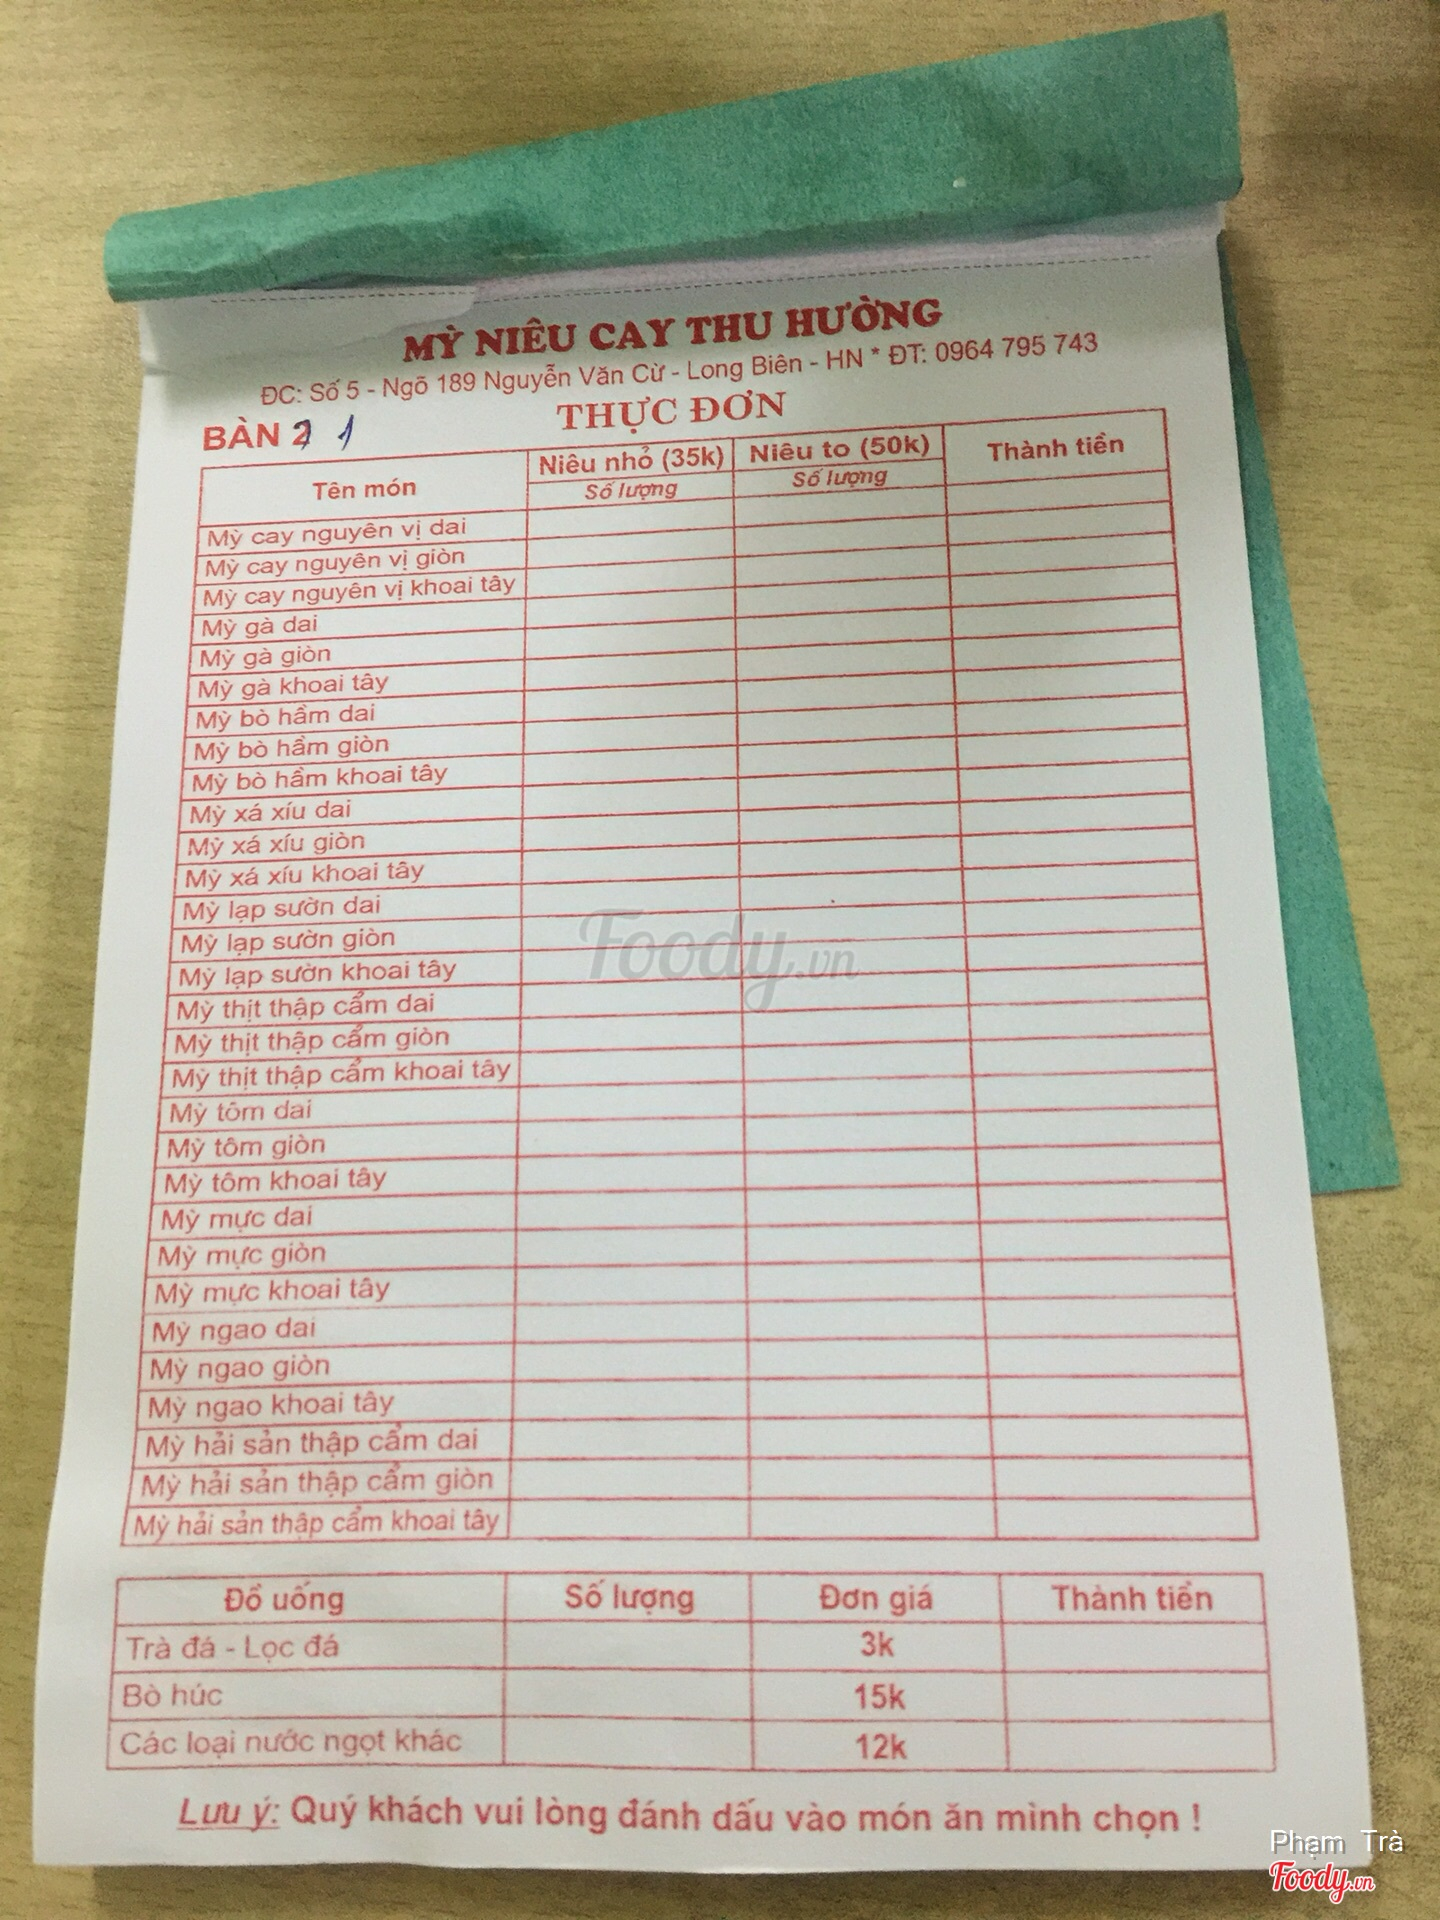 MỲ NIÊU CAY THU HƯỜNG
ĐC: Số 5 - Ngõ 189 Nguyễn Văn Cừ - Long Biên - HN * ĐT: 0964 795 743
THỰC ĐƠN
BÀN 1
Tên món Niêu nhỏ (35k) Niêu to (50k) Thành tiền
Số lượng Số lượng
Mỳ cay nguyên vị dai
Mỳ cay nguyên vị giòn
Mỳ cay nguyên vị khoai tây
Mỳ gà dai
Mỳ gà giòn
Mỳ gà khoai tây
Mỳ bò hầm dai
Mỳ bò hầm giòn
Mỳ bò hầm khoai tây
Mỳ xá xíu dai
Mỳ xá xíu giòn
Mỳ xá xíu khoai tây
Mỳ lạp sườn dai
Mỳ lạp sườn giòn
Mỳ lạp sườn khoai tây
Mỳ thịt thập cẩm dai
Mỳ thịt thập cẩm giòn
Mỳ thịt thập cẩm khoai tây
Mỳ tôm dai
Mỳ tôm giòn
Mỳ tôm khoai tây
Mỳ mực dai
Mỳ mực giòn
Mỳ mực khoai tây
Mỳ ngao dai
Mỳ ngao giòn
Mỳ ngao khoai tây
Mỳ hải sản thập cẩm dai
Mỳ hải sản thập cẩm giòn
Mỳ hải sản thập cẩm khoai tây
Foody.vn
Đồ uống Số lượng Đơn giá Thành tiền
Trà đá - Lọc đá 3k
Bò húc 15k
Các loại nước ngọt khác 12k
Lưu ý: Quý khách vui lòng đánh dấu vào món ăn mình chọn !
Phạm Trà
Foody.vn